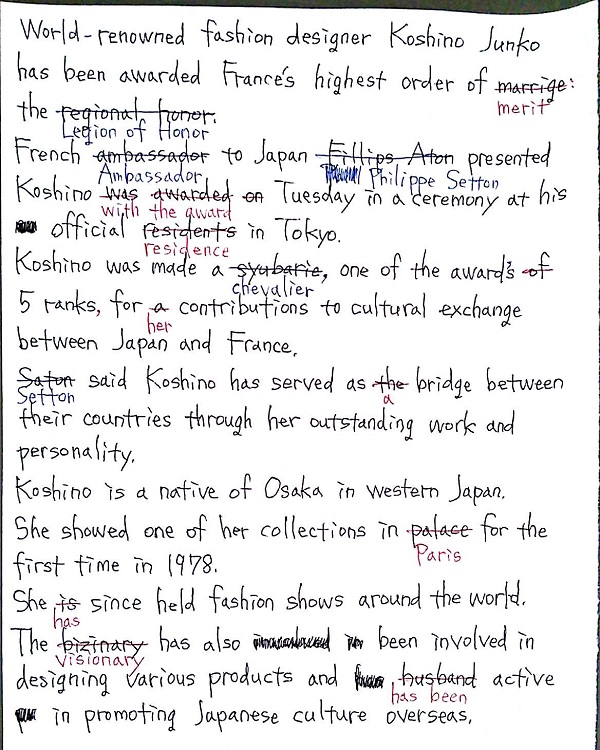 World-renowned fashion designer Koshino Junko
has been awarded France's highest order of marrige:
merit
the regional honor.
Legion of Honor
French ambassador to Japan Fillips Aton presented
Ambassador, Philippe Setton
Koshino was awarded on Tuesday in a ceremony at his
with the award
official residents in Tokyo.
residence
Koshino was made a syubarie, one of the award's of
chevalier
5 ranks, for a contributions to cultural exchange
her
between Japan and France.
Saton said Koshino has served as the bridge between
Setton a
their countries through her outstanding work and
personality.
Koshino is a native of Osaka in western Japan.
She showed one of her collections in palace for the
Paris
first time in 1978.
She is since held fashion shows around the world.
has
The bizinary has also been involved in
visionary
designing various products and husband active
has been
in promoting Japanese culture overseas.